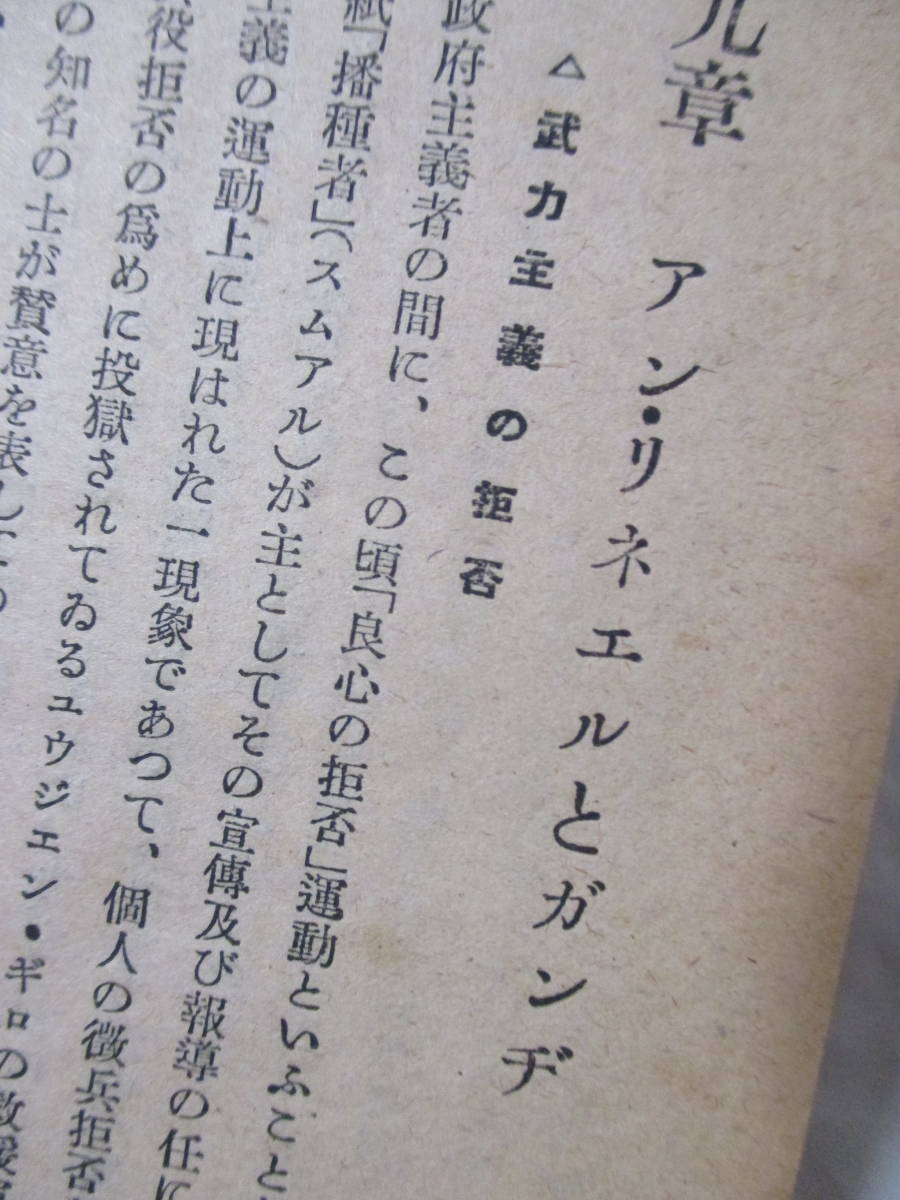 九章　アン・リネエルとガンヂ
△武力主義の拒否
政府主義者の間に、この頃「良心の拒否」運動といふこと
紙「播種者」(スムアル)が主としてその宣傳及び報導の任に
主義の運動上に現はれた一現象であつて、個人の徴兵拒否
役拒否の爲めに投獄されてゐるユウジエン・ギロの救援
の知名の士が賛意を表し